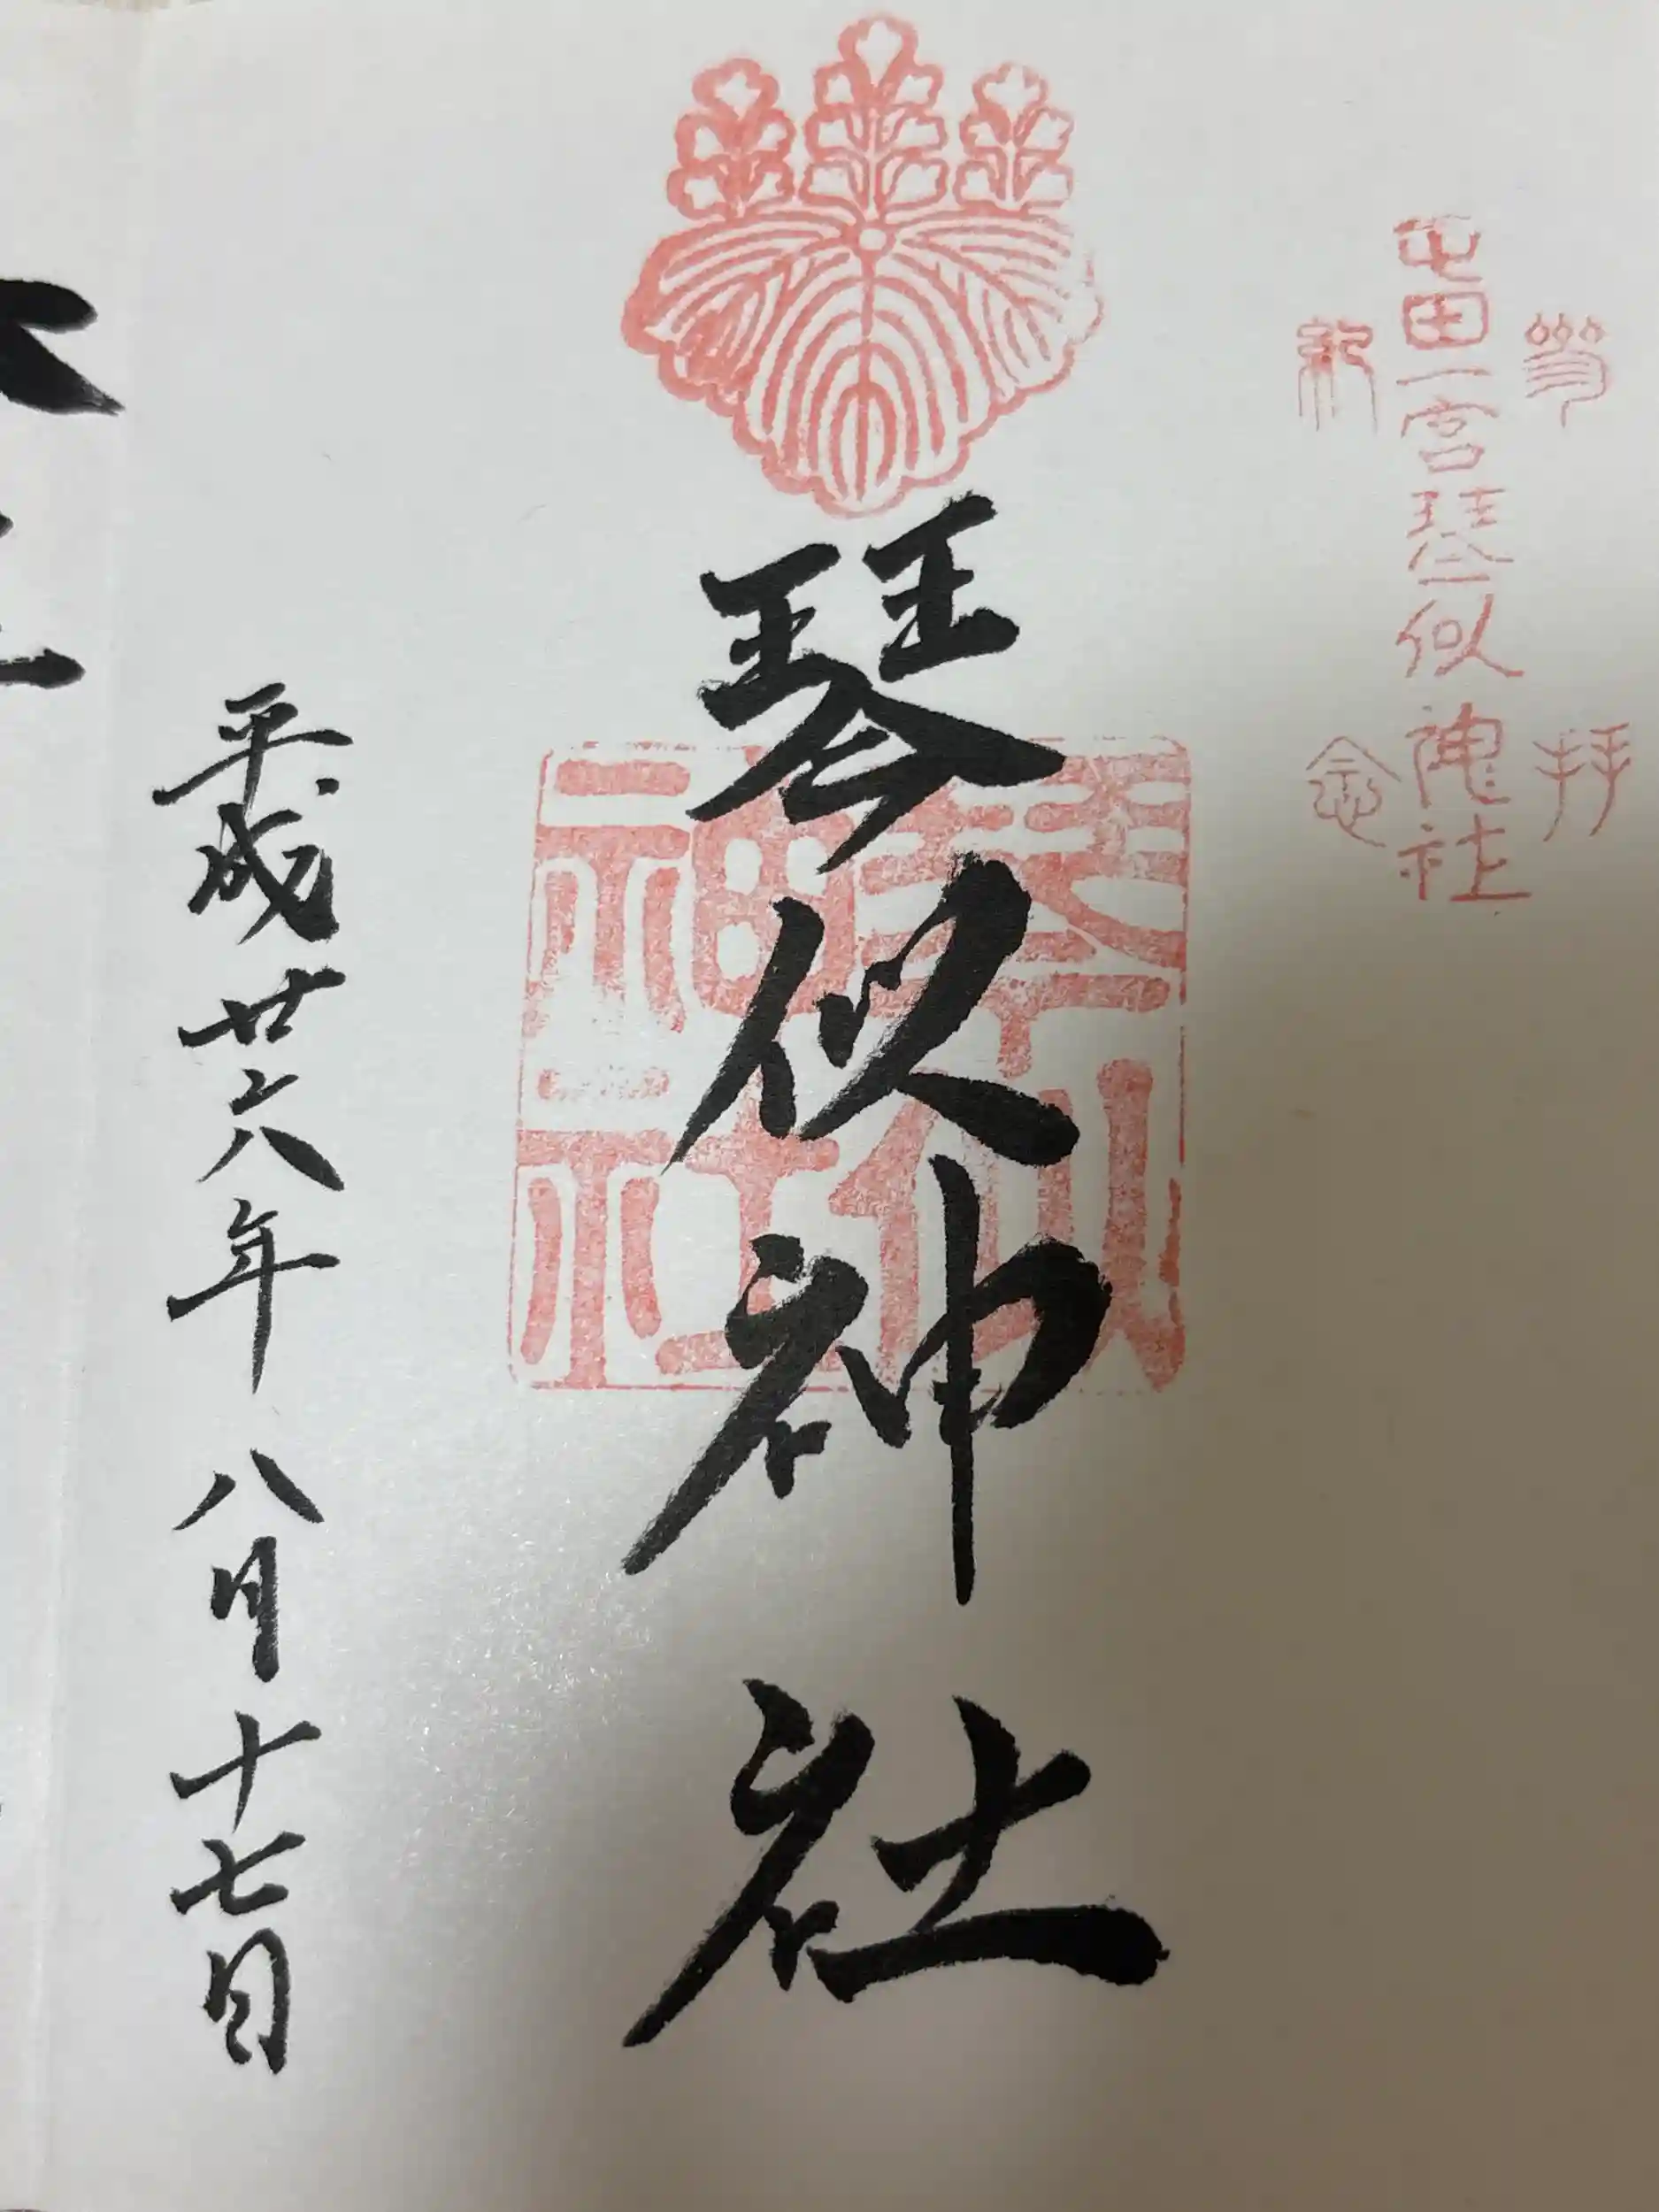 参拝
屯田一宮琴似神社
紀念
琴似神社
琴似
神社
平成廿六年八月十七日